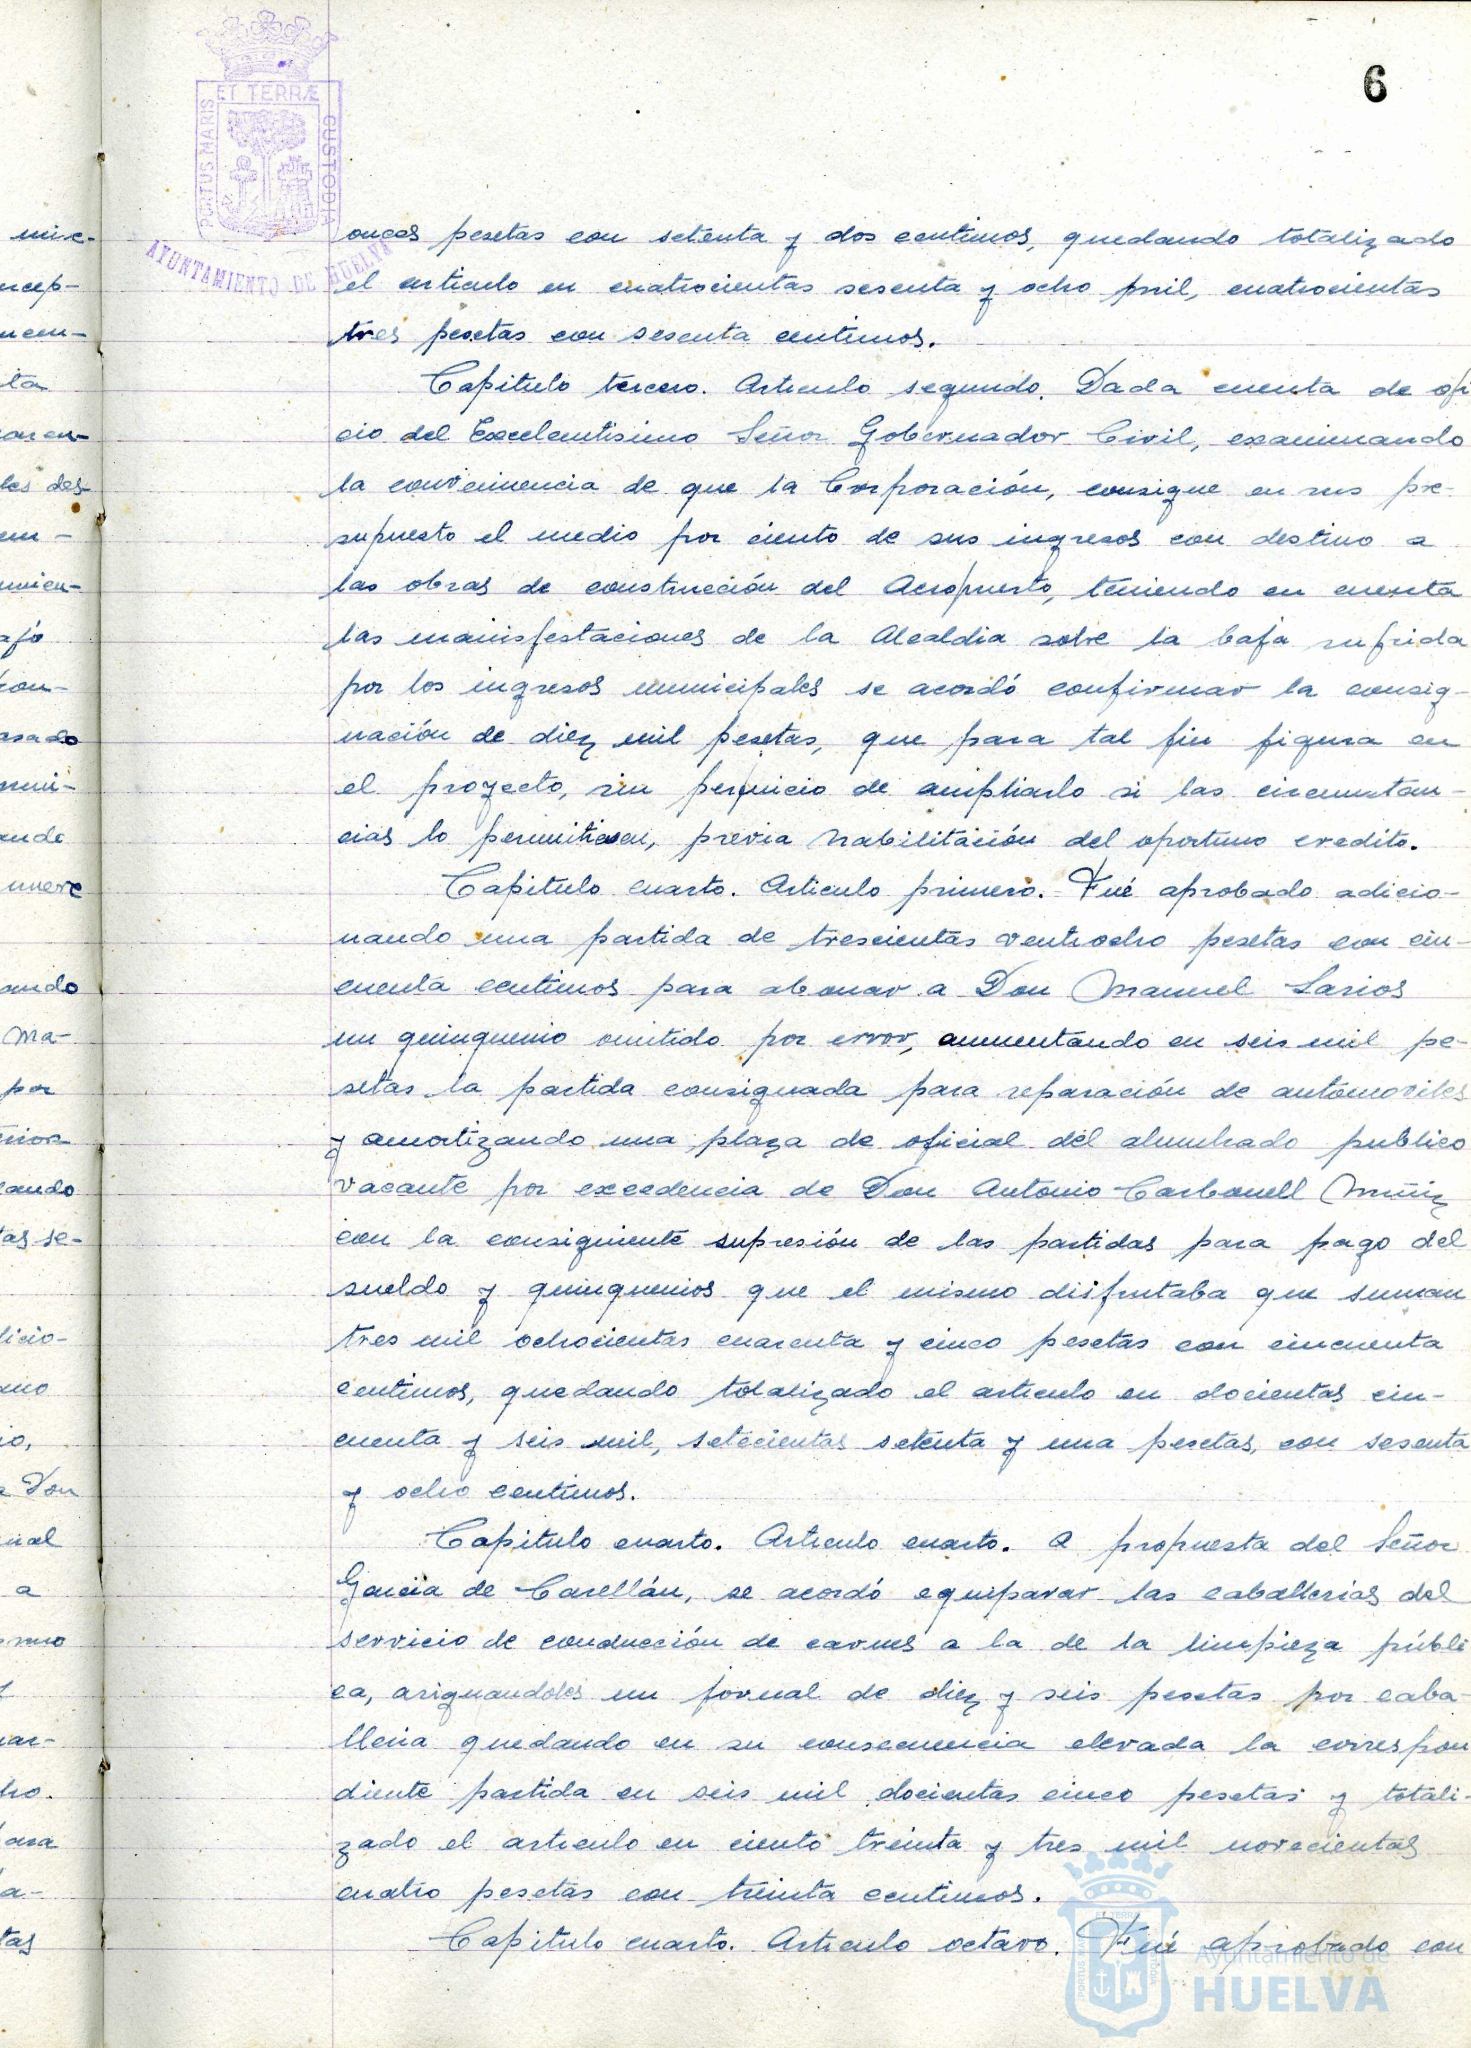 6
ET TERRÆ
PORTUS MARIS
CUSTODIA
AYUNTAMIENTO DE HUELVA
onces pesetas con setenta y dos centimos, quedando totalizado
el articulo en cuatrocientas sesenta y ocho mil, cuatrocientas
tres pesetas con sesenta centimos.
Capitulo tercero. Articulo segundo. Dada cuenta de ofi
cio del Excelentisimo Señor Gobernador Civil, examinando
la conveniencia de que la Corporación, consigne en sus pre-
supuesto el medio por ciento de sus ingresos con destino a
las obras de construcción del Aeropuerto, teniendo en cuenta
las manisfestaciones de la Alcaldia sobre la baja sufrida
por los ingresos municipales se acordó confirmar la consig-
nación de diez mil pesetas, que para tal fin figura en
el proyecto, sin perjuicio de ampliarlo si las circunstan-
cias lo permitiesen, previa habilitación del oportuno credito.
Capitulo cuarto. Articulo primero. - Fué aprobado adicio-
nando una partida de trescientas ventiocho pesetas con cin-
cuenta centimos para abonar a Don Manuel Larios
un quinquenio omitido por error, aumentando en seis mil pe-
setas la partida consignada para reparación de automoviles
y amortizando una plaza de oficial del alumbrado publico
vacante por excedencia de Don Antonio Carbonell Muñiz
con la consiguiente supresión de las partidas para pago del
sueldo y quinquenios que el mismo disfrutaba que suman
tres mil ochocientas cuarenta y cinco pesetas con cincuenta
centimos, quedando totalizado el articulo en docientas cin-
cuenta y seis mil, setecientas setenta y una pesetas, con sesenta
y ocho centimos.
Capitulo cuarto. Articulo cuarto. A propuesta del Señor
Garcia de Carellán, se acordó equiparar las caballerias del
servicio de conducción de carnes a la de la limpieza públi
ca, asignandoles un jornal de diez y seis pesetas por caba-
lleria quedando en su consecuencia elevada la correspon
diente partida en seis mil docientas cinco pesetas y totali-
zado el articulo en ciento treinta y tres mil novecientas
cuatro pesetas con treinta centimos.
Capitulo cuarto. Articulo octavo. Fué aprobado con
Ayuntamiento de
HUELVA